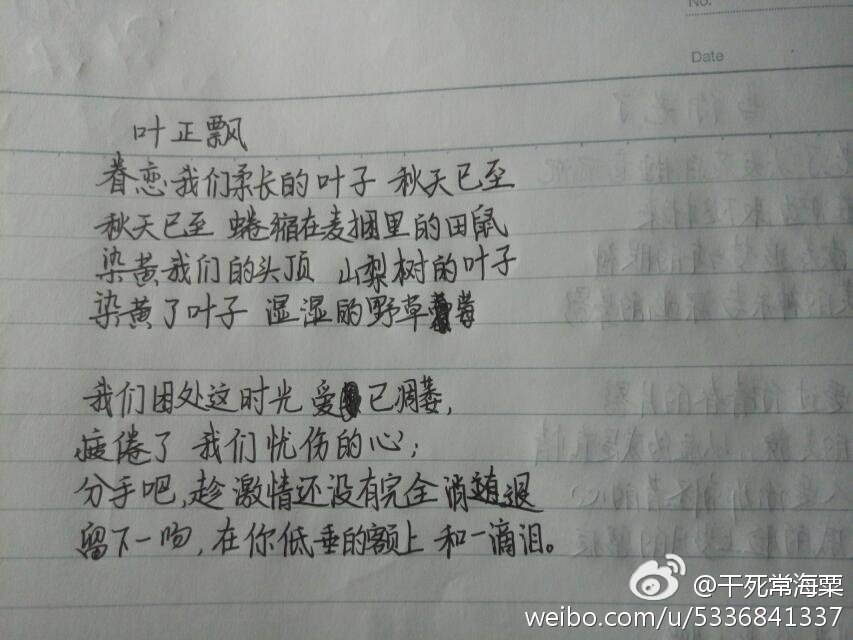 No.
Date
叶正飘
眷恋我们柔长的叶子 秋天已至
秋天已至 蜷缩在麦捆里的田鼠
染黄我们的头顶 山梨树的叶子
染黄了叶子 湿湿的野草莓
我们困处这时光 爱已凋萎,
疲倦了 我们忧伤的心;
分手吧,趁激情还没有完全消退
留下一吻,在你低垂的额上 和一滴泪。
@干死常海粟
weibo.com/u/5336841337